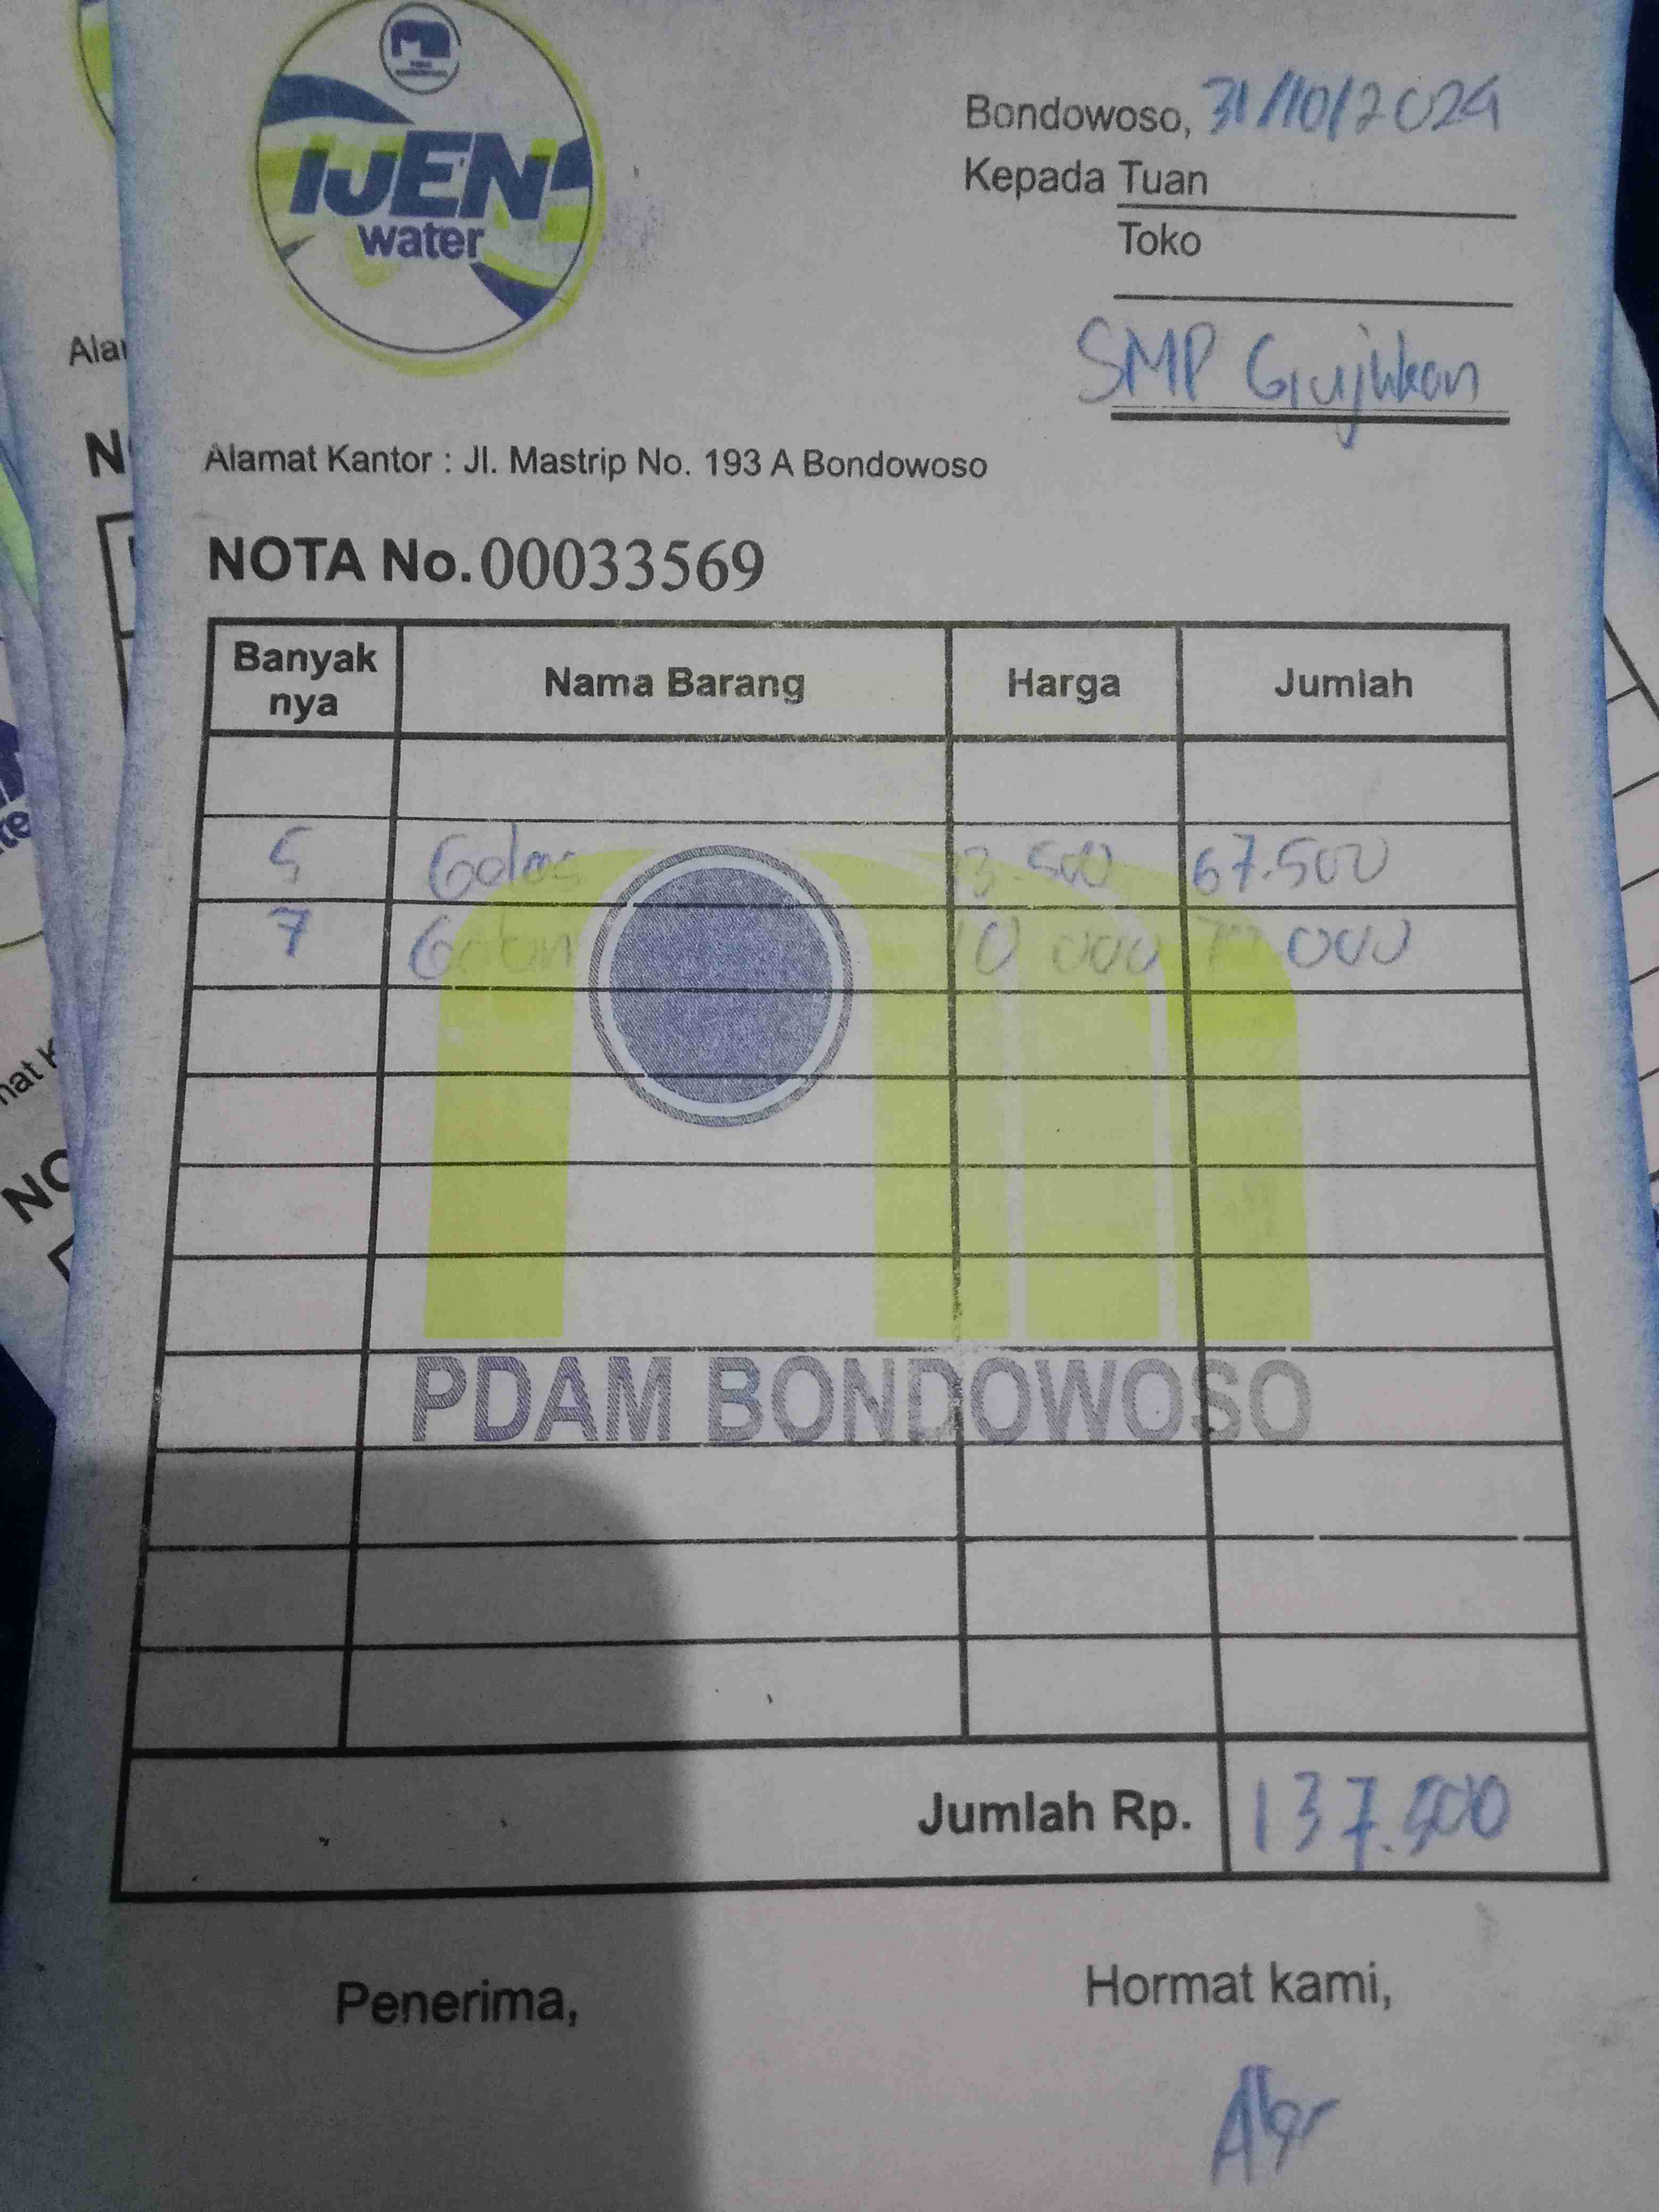 IJEN
water
Bondowoso, 31/10/2024
Kepada Tuan
Toko
SMP Grujukan
Alamat Kantor : Jl. Mastrip No. 193 A Bondowoso
NOTA No. 00033569
Banyak nya Nama Barang Harga Jumlah
5 Gelas 3.500 67.500
7 Galon 10 000 70.000
PDAM BONDOWOSO
Jumlah Rp. 137.500
Penerima,
Hormat kami,